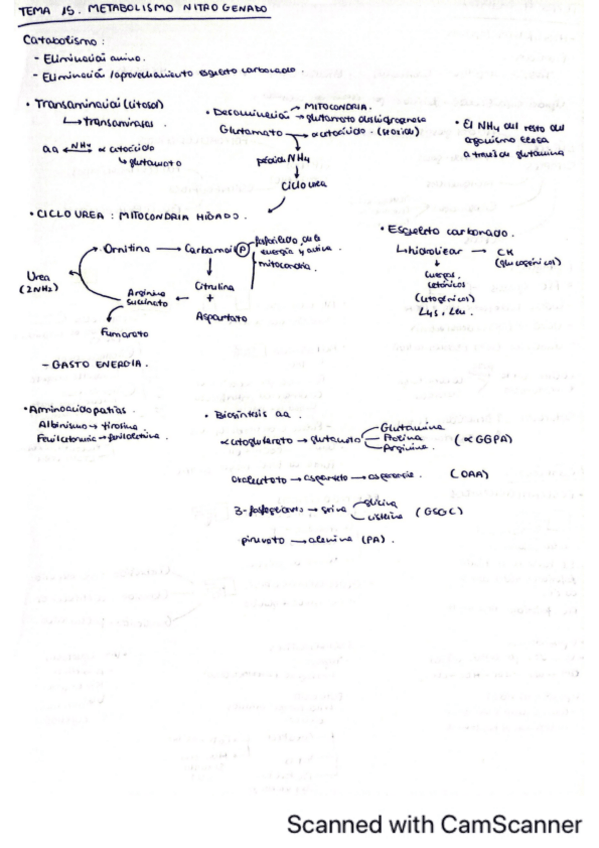 TEMA 15. METABOLISMO NITROGENADO
Catabolismo:
- Eliminación amino.
- Eliminación / aprovechamiento esqueleto carbonado.
• Transaminación (citosol)
↳ transaminasas.
aa ←NH4→ α cetoácido
↳ glutamato
• Desaminación → MITOCONDRIA.
→ glutamato deshidrogenasa
Glutamato → α cetoácido
NH4
Ciclo urea
• El NH4 del resto del
organismo
a través de glutamina
• CICLO UREA: MITOCONDRIA HÍGADO.
Ornitina → Carbamoil P
fosforilado, de la
energía y activa.
mitocondria.
Citrulina
+
Aspartato
Arginino
succinato
Fumarato
Urea
(2NH2)
• Esqueleto carbonado.
↳ hidrolizar → CK
(glucogénicos)
↓
cuerpos
cetónicos
(cetogénicos)
Lys, Leu.
- GASTO ENERGÍA.
• Aminoacidopatías.
Albinismo → tirosina
Fenilcetonuria → fenilalanina
• Biosíntesis aa.
α cetoglutarato → glutamato
Glutamina
Prolina
Arginina
(α GGPA)
oxalacetato → aspartato → asparagina. (OAA)
3-fosfoglicerato → serina
glicina
cisteína
(GSGC)
piruvato → alanina (PA).
Scanned with CamScanner